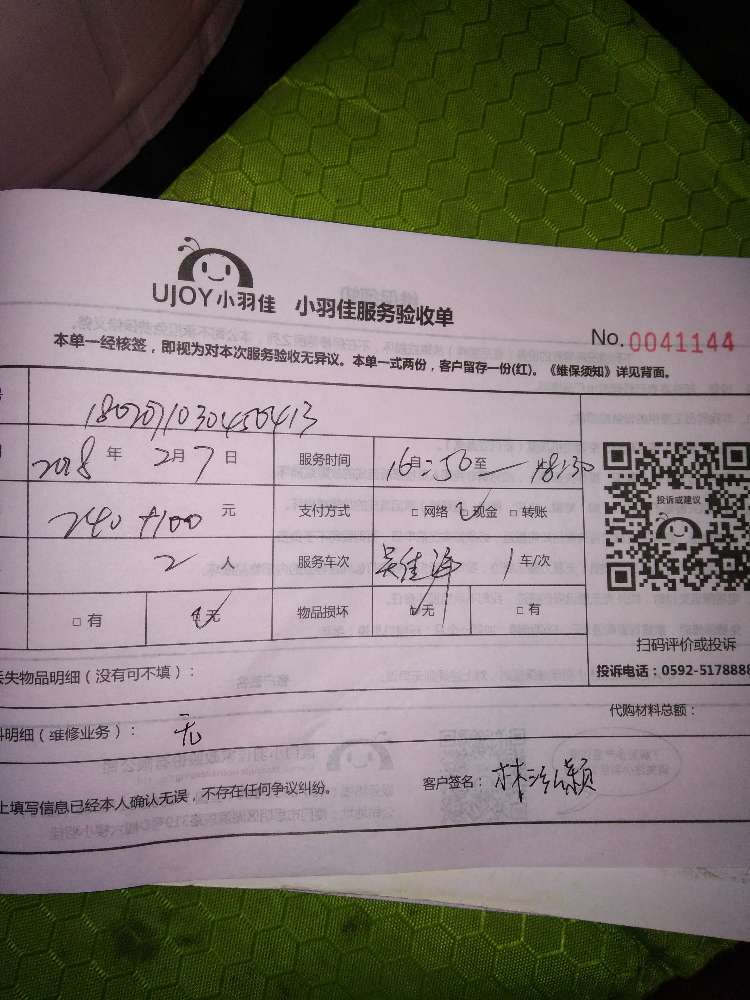 UJOY小羽佳 小羽佳服务验收单
No.0041144
本单一经核签，即视为对本次服务验收无异议。本单一式两份，客户留存一份(红)。《维保须知》详见背面。
2018年2月7日 服务时间 16:50至 18:30
240+100元 支付方式 □网络 □现金 □转账
2人 服务车次 1车/次
□有 □无 物品损坏 □无 □有
投诉或建议
扫码评价或投诉
丢失物品明细（没有可不填）：
投诉电话：0592-5178888
明细（维修业务）： 无
代购材料总额：
上填写信息已经本人确认无误，不存在任何争议纠纷。
客户签名：